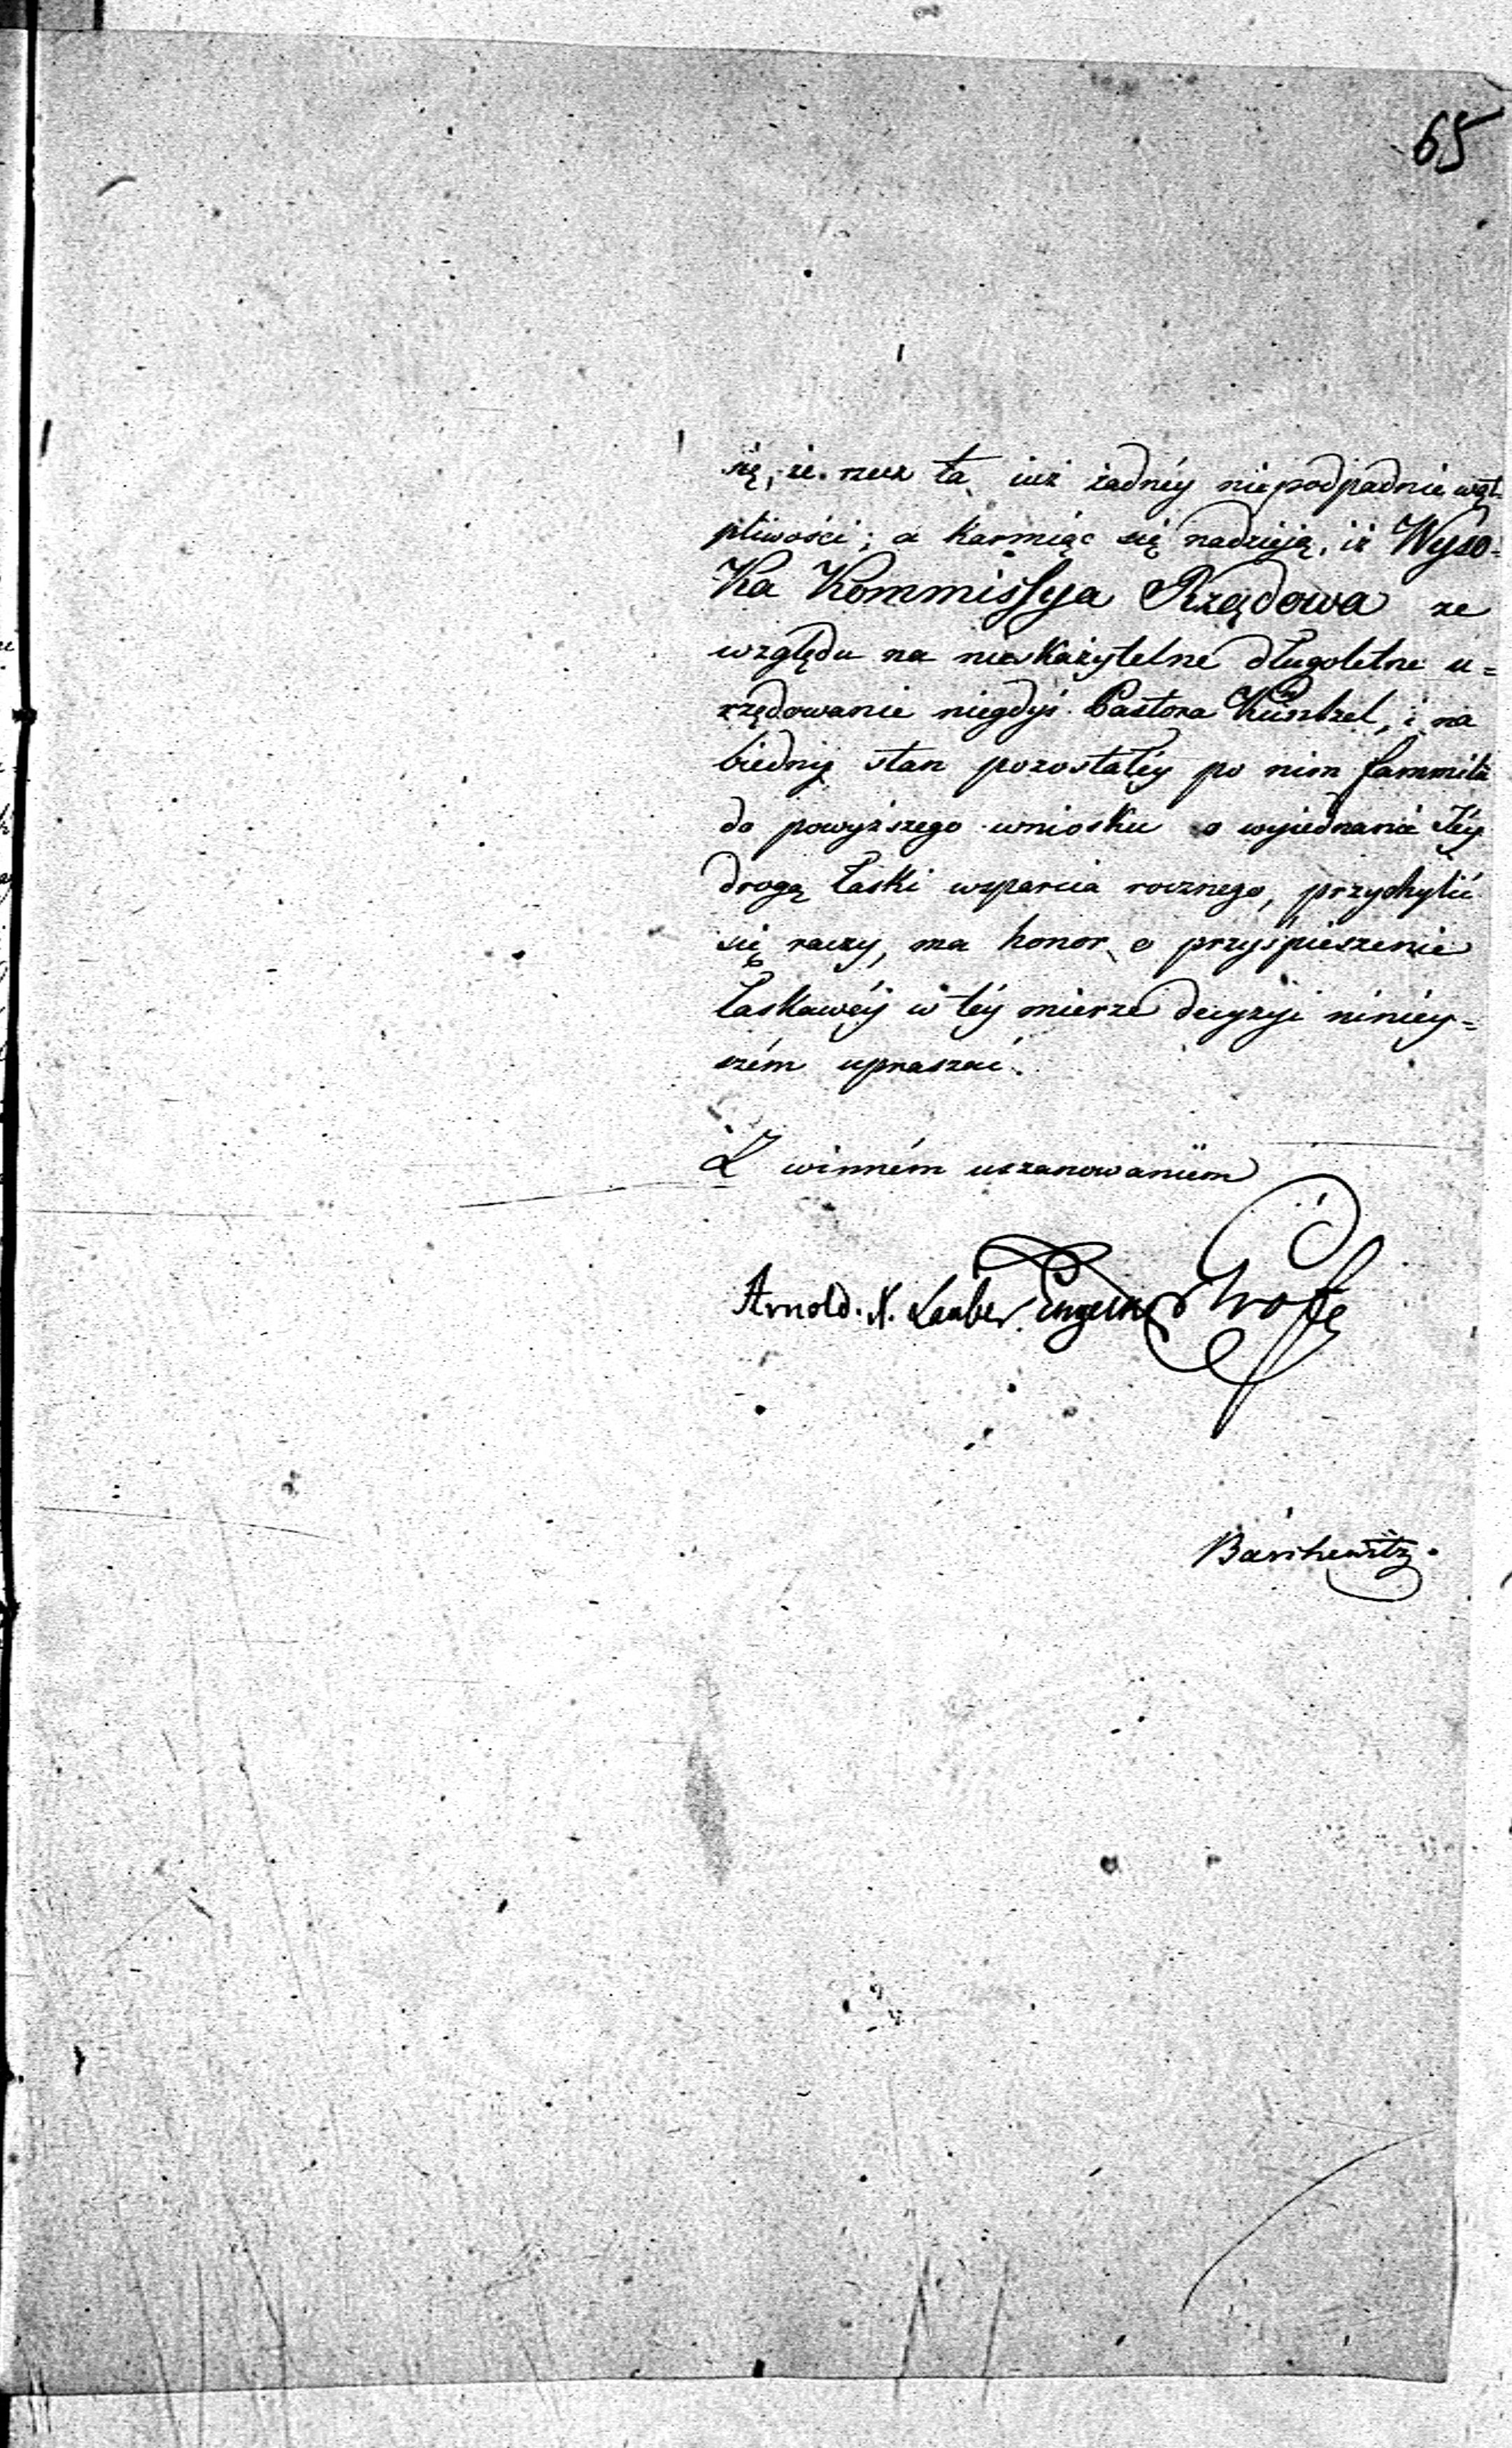 65
się, że rzecz ta iuż żadnéy niepodpadnie wąt-
pliwości; a karmiąc się nadzieją, iż Wyso-
ka Kommissya Rządowa ze
względu na nieskażytelne długoletne u-
rzędowanie niegdyś Pastora Küntzel, i na
biedny stan pozostałéy po nim fammilii
do powyższego wniosku o wyiednanie téy
drogą łaski wsparcia rocznego, przychylić
się raczy, ma honor o przyśpieszenie
łaskawéy w téy mierze decyzyi niniey-
szém upraszać.
Z winném uszanowaniem
Arnold. Lauber.